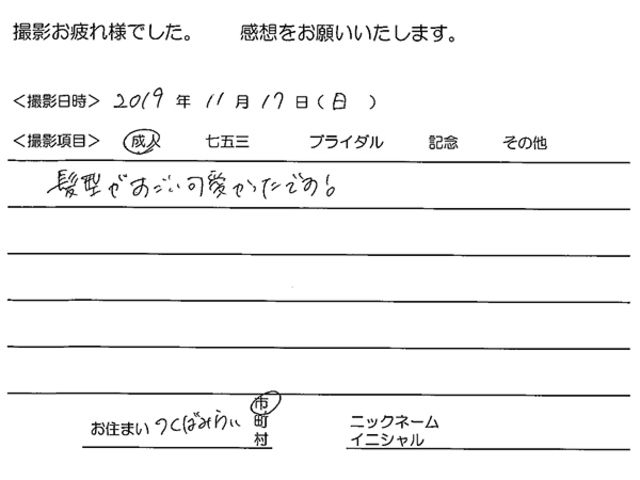 撮影お疲れ様でした。　感想をお願いいたします。
＜撮影日時＞ 2019 年 11 月 17 日（日　）
＜撮影項目＞ 成人　七五三　ブライダル　記念　その他
髪型がすごい可愛かったです！
お住まい つくばみらい 市
町
村
ニックネーム
イニシャル